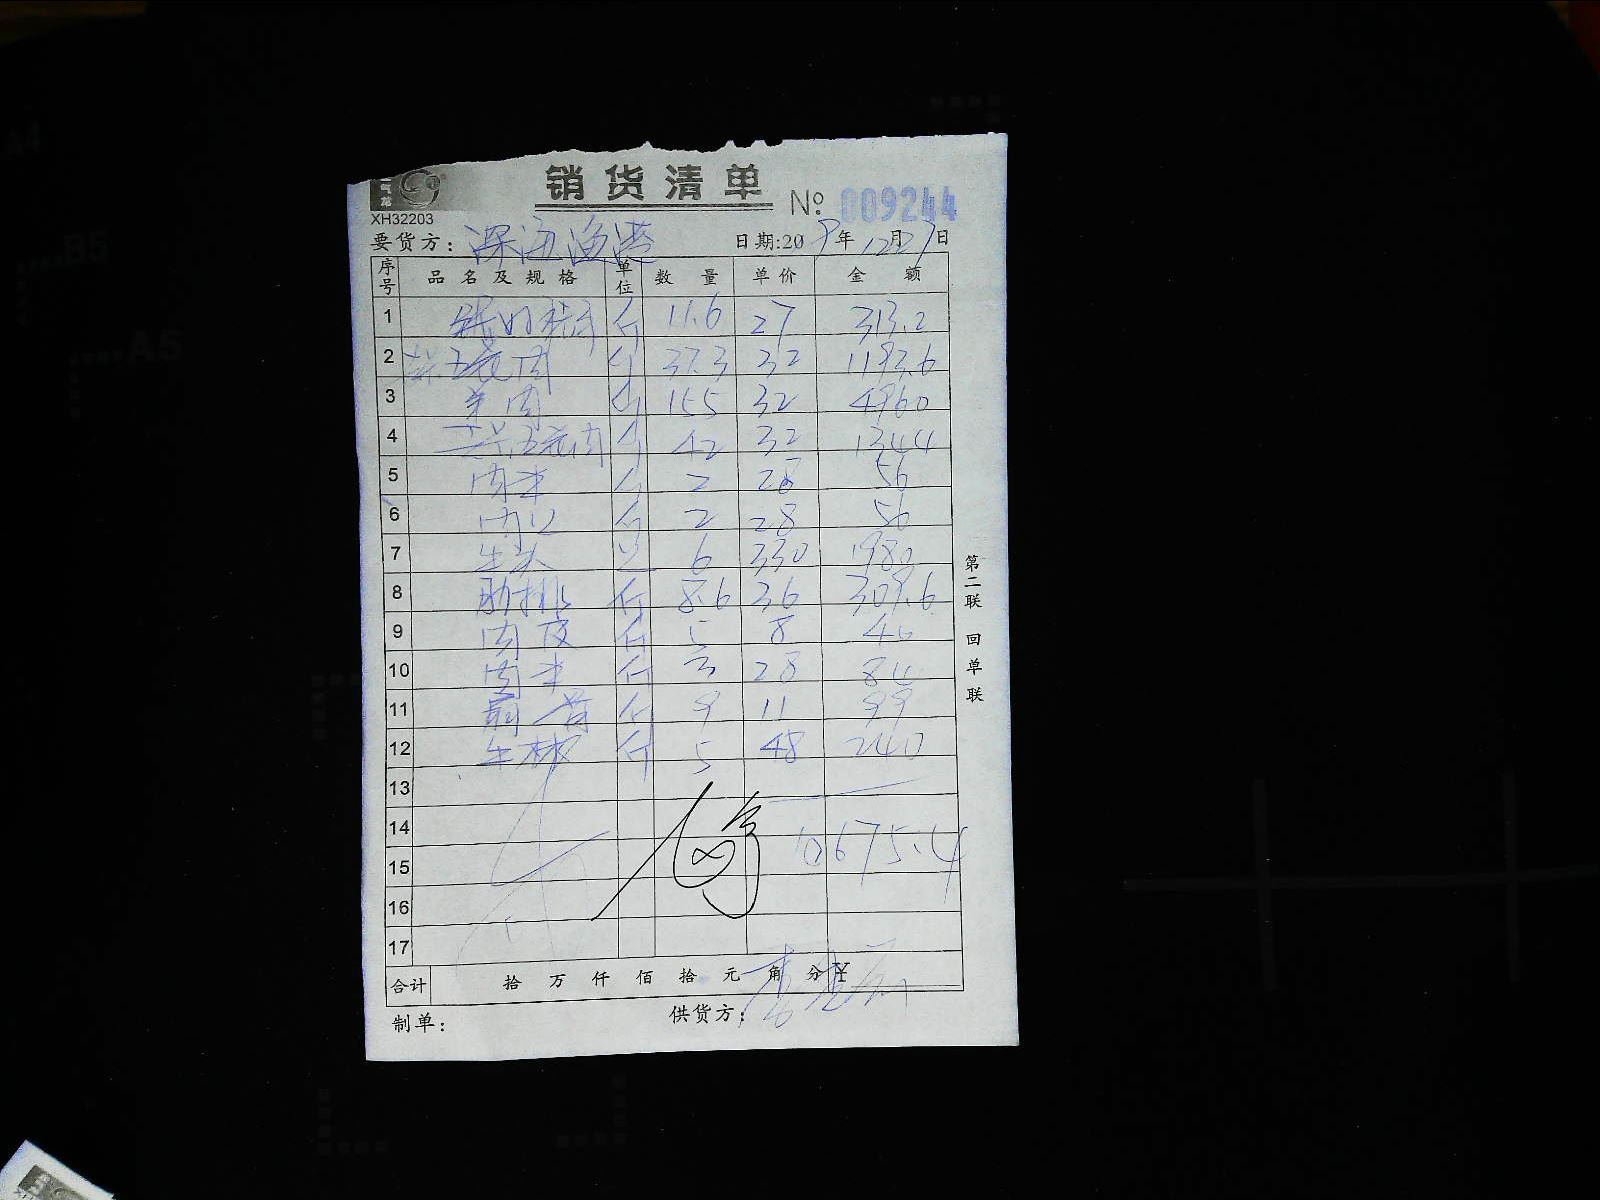 销货清单
XH32203
№ 009244
要货方: 深海渔港 日期:20 9年12月27日
序号 品名及规格 单位 数量 单价 金额
1 斤 11.6 27 313.2
2 五花肉 斤 37.3 32 1193.6
3 羊肉 斤 155 32 4960
4 五花肉 斤 42 32 1344
5 肉末 斤 2 28 56
6 肉 斤 2 28 56
7 牛头 只 6 330 1980
8 肋排 斤 8.6 36 309.6
9 肉皮 斤 5 8 40
10 肉末 斤 3 28 84
11 斤 9 11 99
12 牛 斤 5 48 240
13
14
10675.4
15
16
17
合计 拾 万 仟 佰 拾 元 角 分 ¥
制单: 供货方:
第二联 回单联
A4
B5
A5